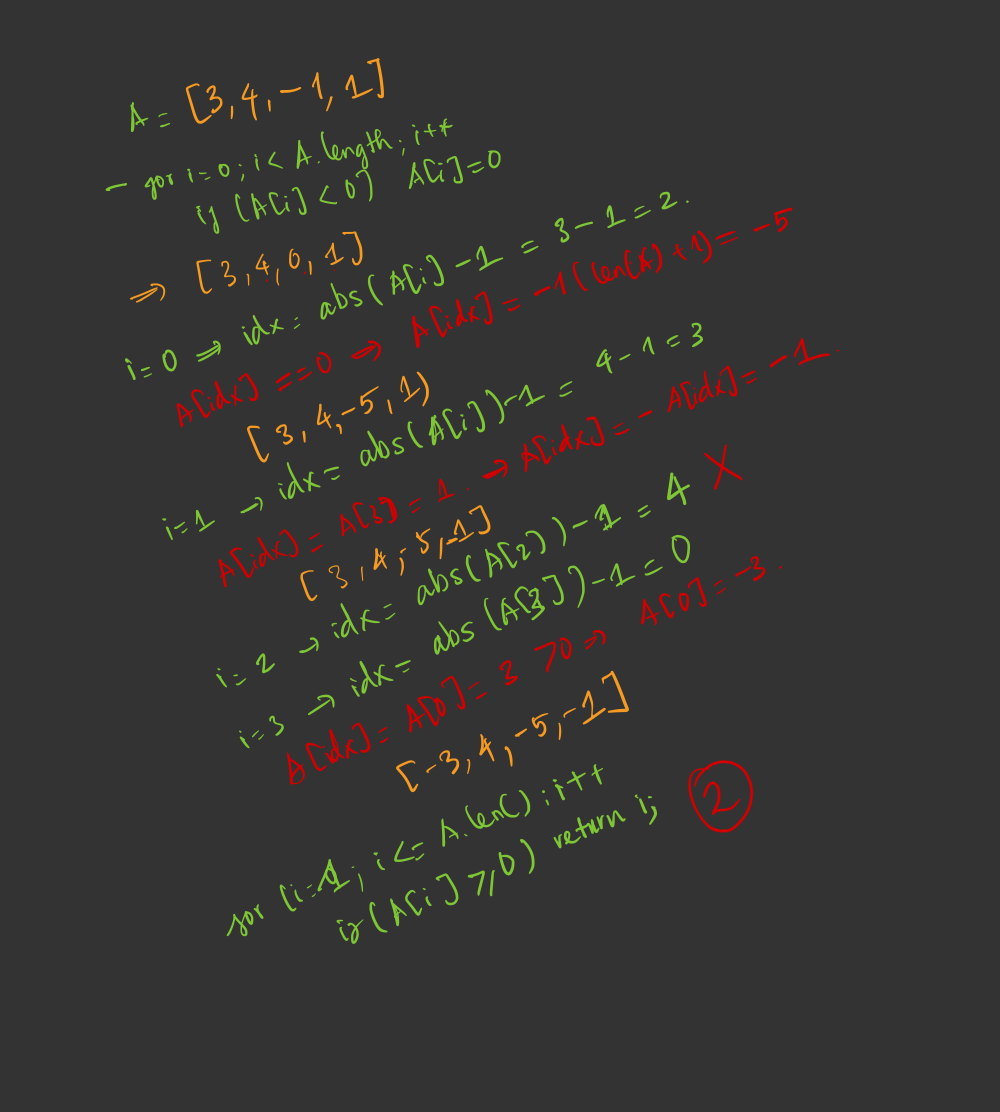 A = [3, 4, -1, 1]
- for i=0; i< A.length; i++
if (A[i] < 0) A[i]=0
⇒ [3, 4, 0, 1]
i=0 ⇒ idx = abs(A[i) -1 = 3-1=2.
A[idx] ==0 → A[idx] = -1(len(A)+1) = -5
[3, 4, -5, 1)
i=1 → idx = abs(A[i])-1 = 4-1=3
A[idx] = A[3] = 1. → A[idx] = - A[idx] = -1.
[3, 4, -5, -1]
i=2 → idx= abs(A[2))-1 = 4 X
i=3 → idx= abs (A[3])-1=0
A[idx] = A[0] = 3 >0 ⇒ A[0] = -3.
[-3, 4, -5, -1]
for (i=1; i<= A.len(); i++
if (A[i] >, 0) return i;
2